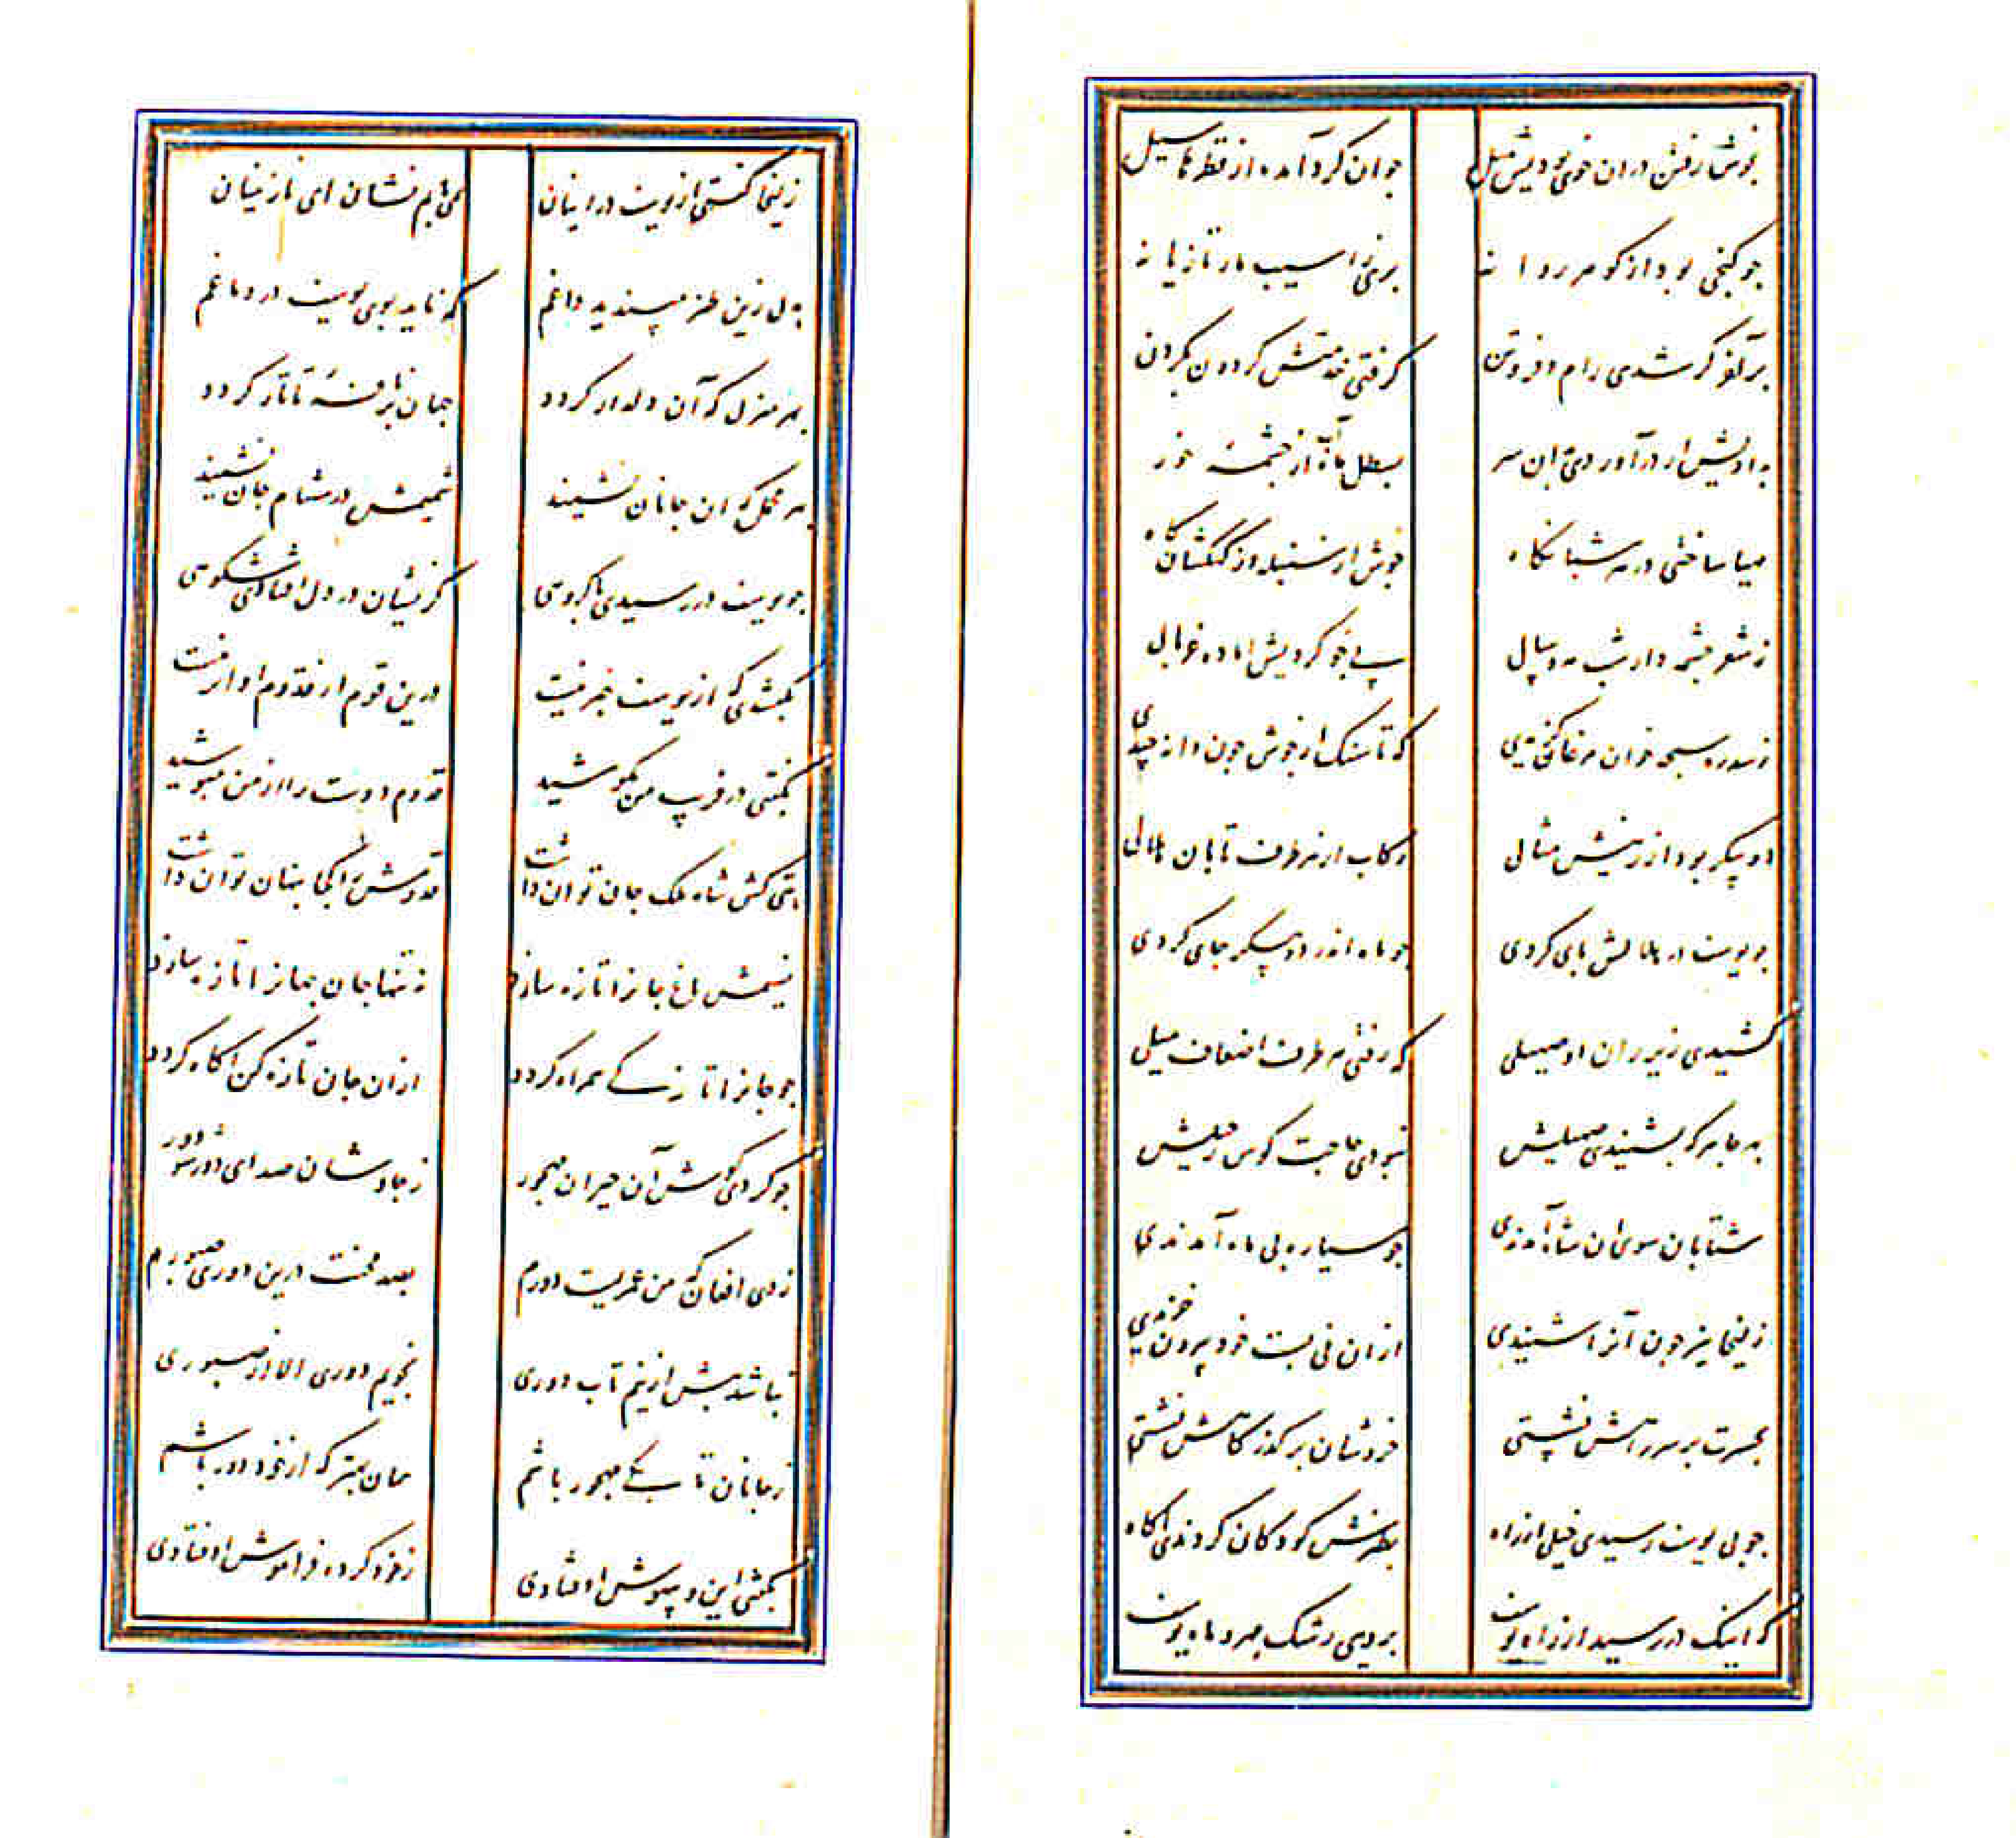 بخوش رفتن در آن خوی بودیش میل جوان کرد آمده از قطرها سیل
جو کنجی بود از کوهر روانه بری ز اسیب مار تازیانه
بر آخر کر شدی رام و فروتن کرفتی خدمتش کردون بکردن
بسطل ماه آب از چشمه خور
مهیا ساختی در هر شبانکاه جوش از سنبله وز کهکشان کاه
ز شعر جشمه دار شب مه و سال پی جو کردیش اماده غربال
ز سدره سبحه خوان مرغان که تا سنک از جوش جون دانه چیدی
دو پیکر بود از زینش مثالی رکاب از هر طرف تابان هلالی
جو یوسف در هلالش پای کردی جو ماه اندر دو پیکر جای کردی
کشیدی زیر ران او صهیلی که رفتی هر طرف اضعاف میلی
به هر جا هر که بشنیدی صهیلش نبودی حاجت کوس رحیلش
شتابان سوی آن شاه آمدندی جو سیاره پی ماه آمدندی
زلیخا نیز جون آنرا شنیدی از آن نی بست خود بیرون
بحسرت بر سر راهش نشستی خروشان بر کذرکاهش نشستی
جو بی یوسف رسیدی خیلی از راه بطنزش کودکان کردندی آکاه
که اینک در رسید از راه یوسف بروی رشک مهر و ماه یوسف
زلیخا کفتی از یوسف در اینان نمی یابم نشان ای نازنینان
به دل زین طنز مپسندید داغم که ناید بوی یوسف در دماغم
بهر منزل که آن دلدار کردد جهان پر نافه تاتار کردد
بهر محمل که آن جانان نشیند شمیمش در مشام جان نشیند
جو یوسف در رسیدی با کروهی کزیشان در دل افتادی شکوهی
بکفتندی که از یوسف خبر نیست درین قوم از قدوم او اثر نیست
بکفتی در فریب من مکوشید قدوم دوست را از من مپوشید
بتی کش شاه ملک جان توان داشت قدومش را کجا پنهان توان داشت
نسیمش باغ جانرا تازه سازد نه تنها جان جهانرا تازه سازد
جو جانرا تازکی همراه کردد از آن جان تازه کن آکاه کردد
جو کردی کوش آن حیران مهجور ز جاوشان صدای دور شو دور
زدی افغان که من عمریست دورم بصد محنت درین دوری صبورم
نباشد بیش ازینم تاب دوری نجویم دوری الا از صبوری
ز جانان تا به کی مهجور باشم همان بهتر که از خود دور باشم
بکفتی این و بیهوش اوفتادی ز خود کرده فراموش اوفتادی